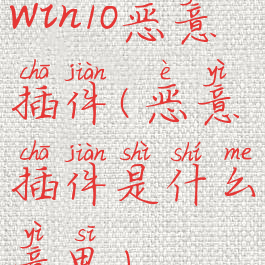 win10恶意
chā jiàn è yì
插件(恶意
chā jiàn shì shí me
插件是什么
yì sī
意思)